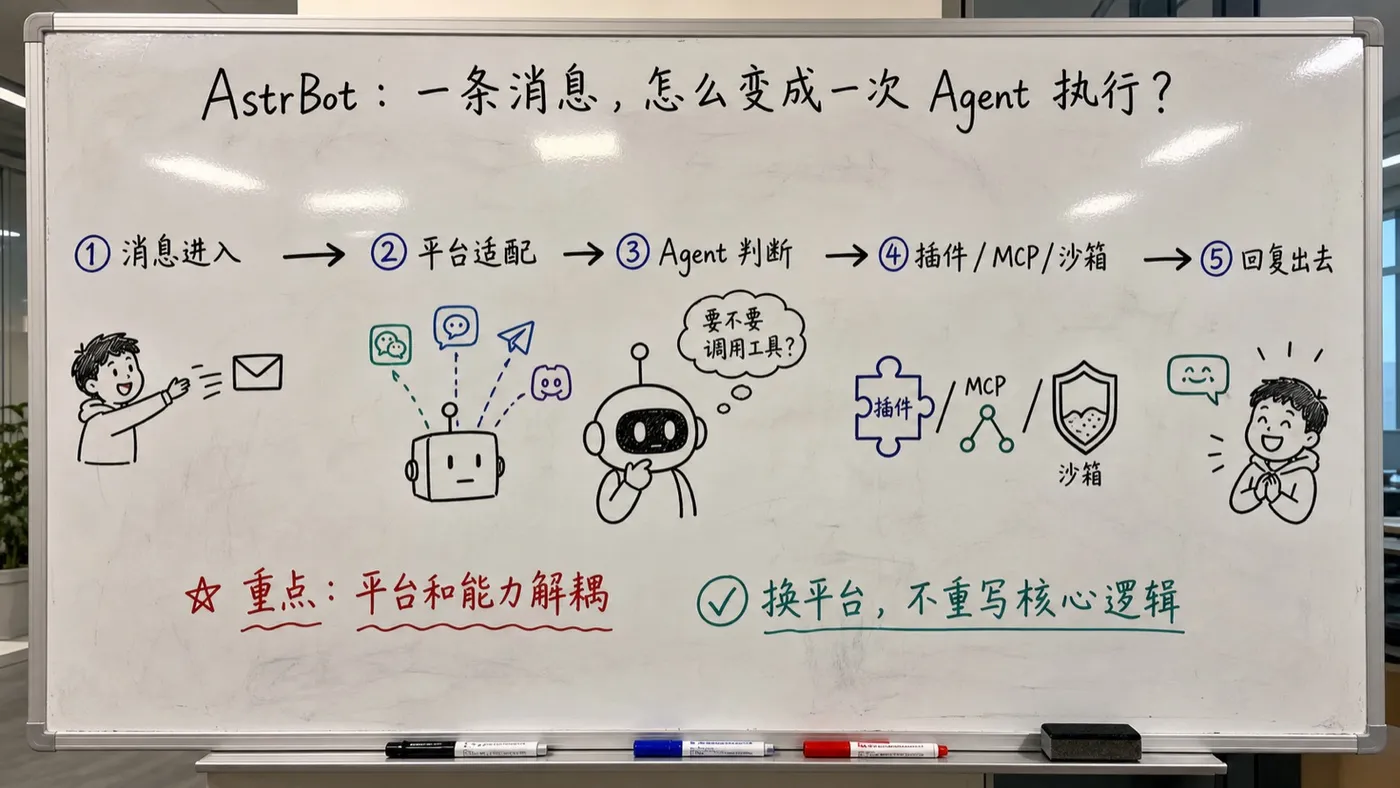 AstrBot：一条消息，怎么变成一次 Agent 执行？
① 消息进入 → ② 平台适配 → ③ Agent 判断 → ④ 插件/MCP/沙箱 → ⑤ 回复出去
要不要
调用工具？
插件 / MCP /
沙箱
☆ 重点：平台和能力解耦
✓ 换平台，不重写核心逻辑